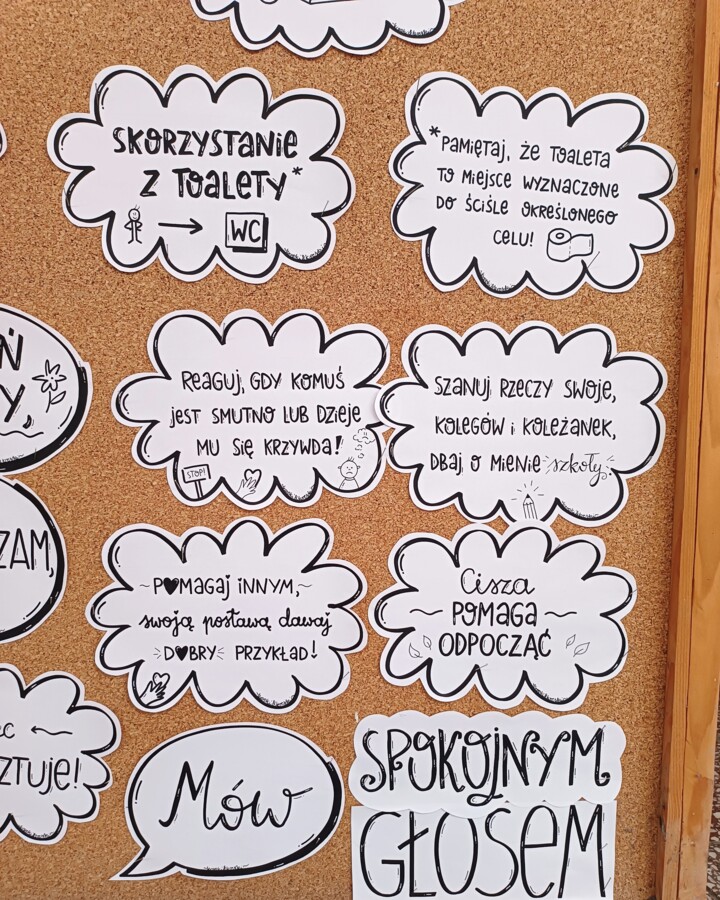 SKORZYSTANIE
Z TOALETY*
WC
*PAMIĘTAJ, ŻE TOALETA
TO MIEJSCE WYZNACZONE
DO ŚCIŚLE OKREŚLONEGO
CELU!
REAGUJ, GDY KOMUŚ
JEST SMUTNO LUB DZIEJE
MU SIĘ KRZYWDA!
STOP!
SZANUJ RZECZY SWOJE,
KOLEGÓW i KOLEŻANEK,
DBAJ O MIENIE szkoły
ZAM,
~POMAGAJ INNYM,~
swoją postawą dawaj
DOBRY PRZYKŁAD!
Cisza
~ POMAGA ~
ODPOCZĄĆ
Mów
SPOKOJNYM
GŁOSEM